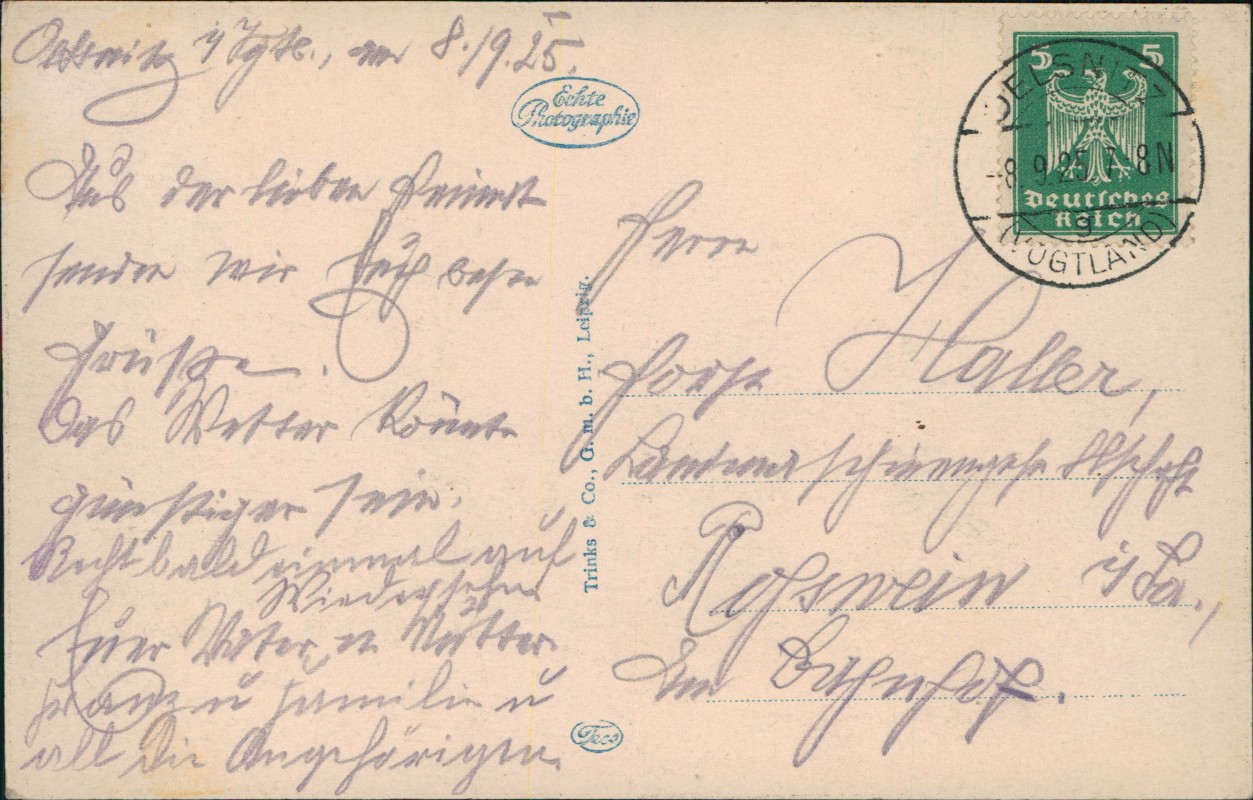 Oelsnitz i/Vgtl., am 8./9.25.
Echte
Photographie
Aus der lieben Heimat
senden wir Euch beste
Grüsse.
Das Wetter könnte
günstiger sein.
Recht bald einmal auf
Wiedersehen
Euer Vater u Mutter
Franz u Familie u
all die Angehörigen.
Trinks & Co., G. m. b. H., Leipzig.
Trco
5 5
Deutsches
Reich
OELSNITZ
-8.9.25.7-8N
g
(VOGTLAND)
Herrn
Horst Haller,
Roßwein i/Sa.,
Am Bahnhof.